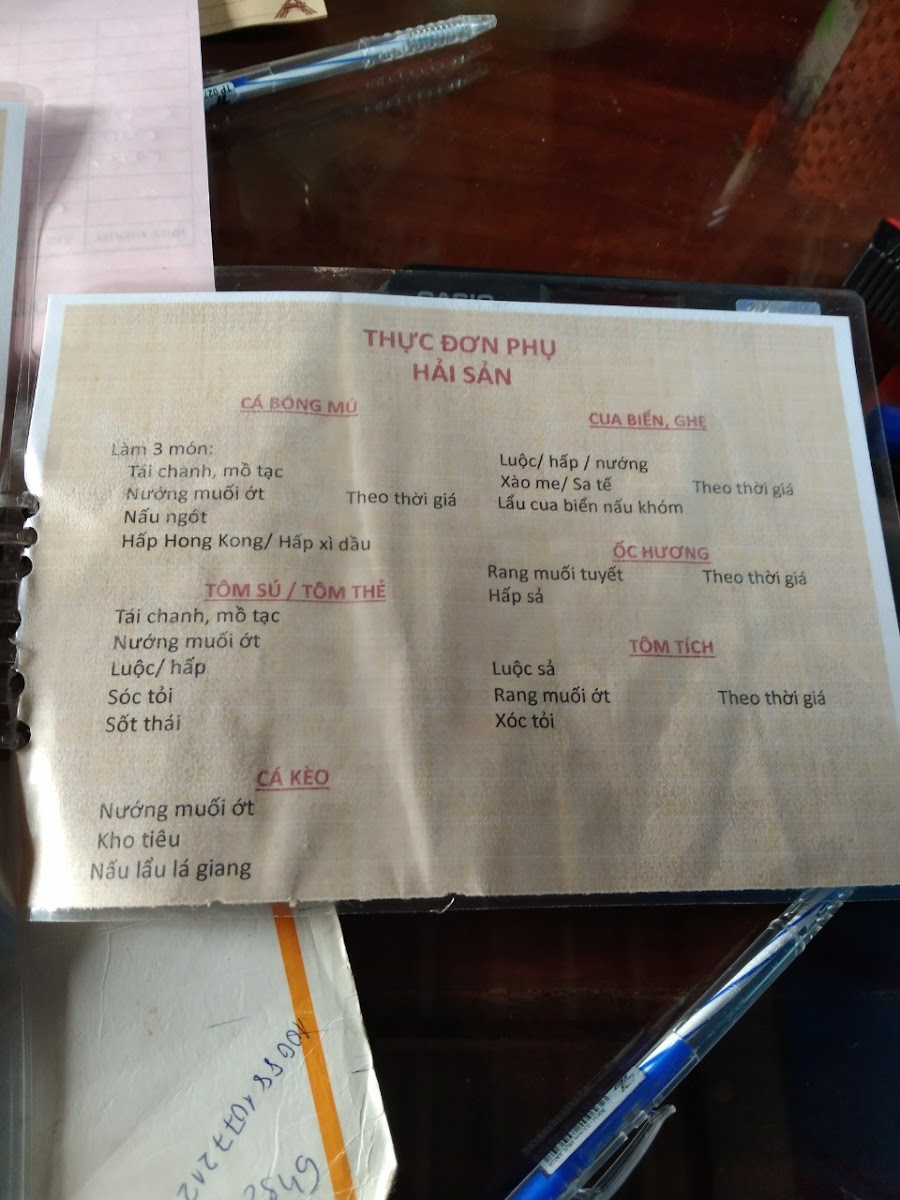 THỰC ĐƠN PHỤ
HẢI SẢN
CÁ BÓNG MÚ
Làm 3 món:
Tái chanh, mồ tạc
Nướng muối ớt
Theo thời giá
Nấu ngót
Hấp Hong Kong/ Hấp xì dầu
TÔM SÚ / TÔM THẺ
Tái chanh, mồ tạc
Nướng muối ớt
Luộc/ hấp
Sóc tỏi
Sốt thái
CÁ KÈO
Nướng muối ớt
Kho tiêu
Nấu lẩu lá giang
CUA BIỂN, GHẸ
Luộc/ hấp / nướng
Xào me/ Sa tế
Theo thời giá
Lẩu cua biển nấu khóm
ỐC HƯƠNG
Rang muối tuyết
Theo thời giá
Hấp sả
TÔM TÍCH
Luộc sả
Rang muối ớt
Theo thời giá
Xóc tỏi
CASIO